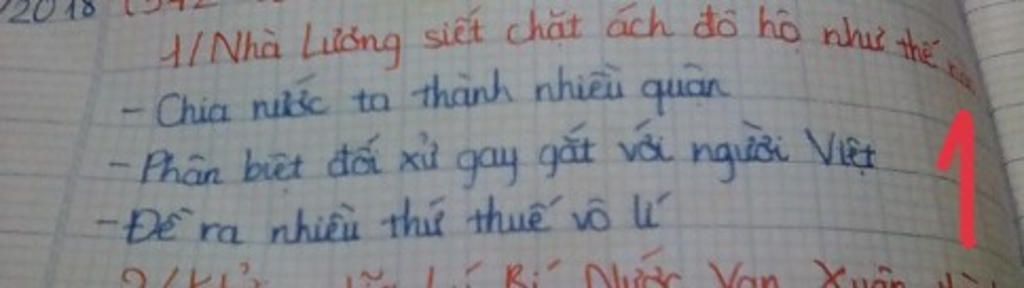 2018 (542
1/ Nhà Lương siết chặt ách đô hộ như thế nào
- Chia nước ta thành nhiều quận
- Phân biệt đối xử gay gắt với người Việt
1
- Đề ra nhiều thứ thuế vô lí
2/ Lí Bí Nước Vạn Xuân